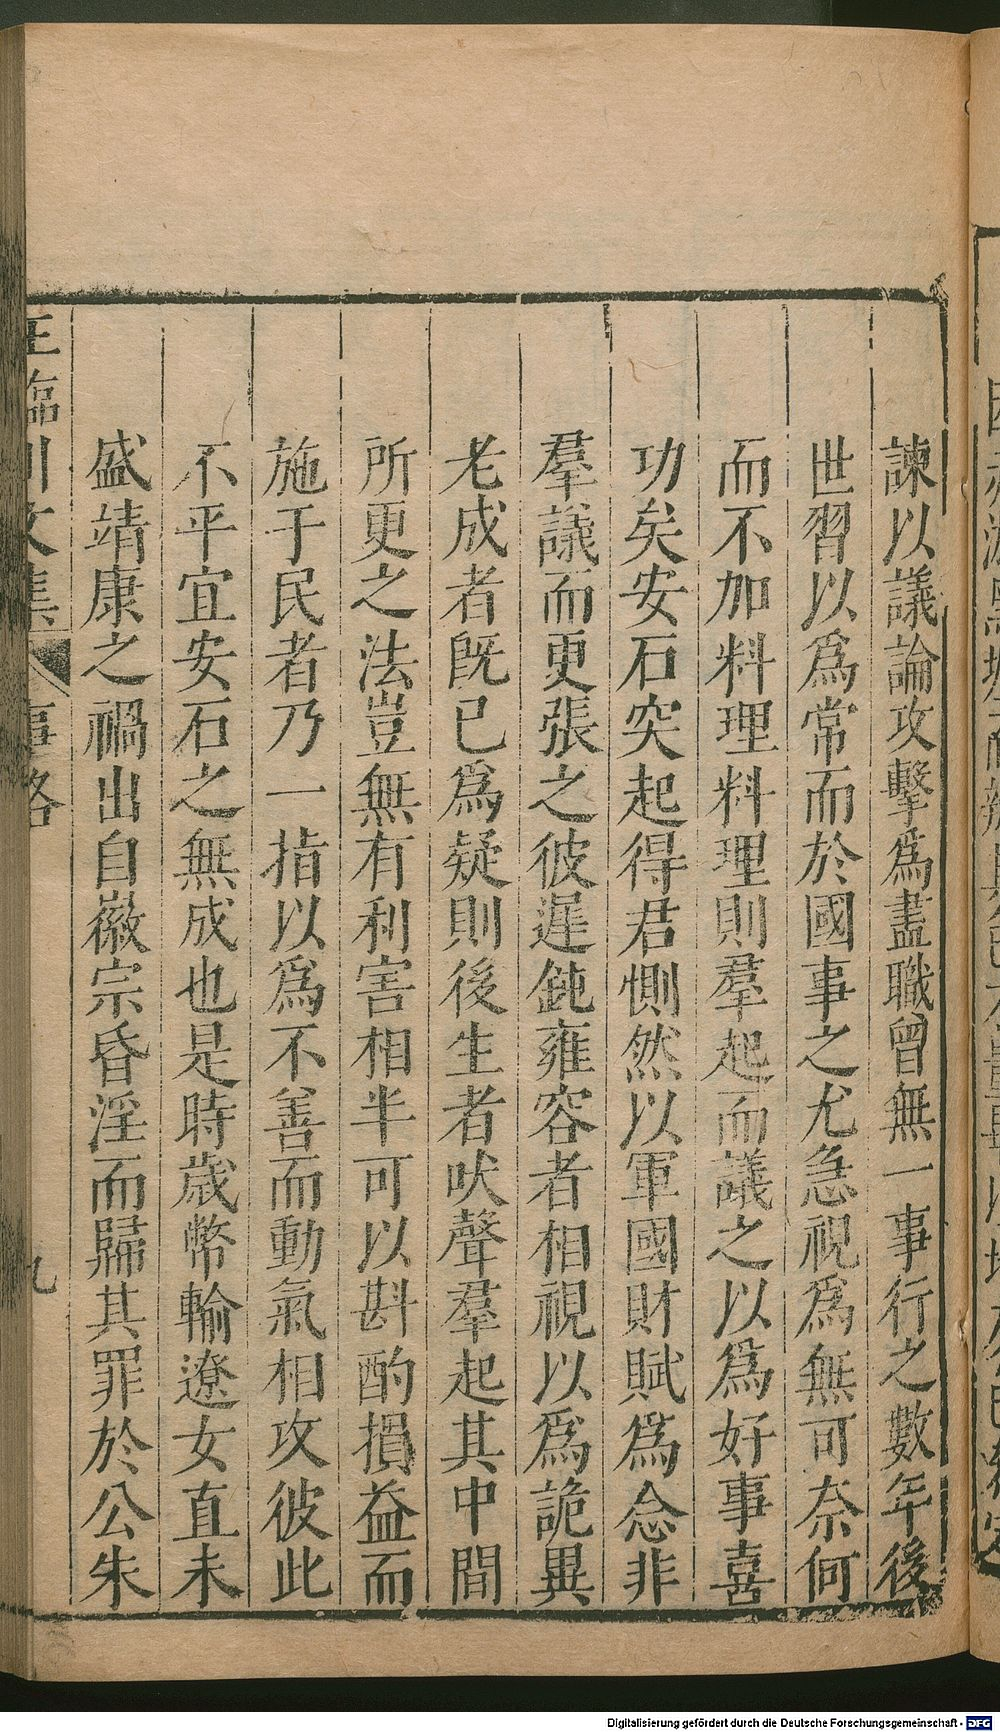 諫以議論攻擊爲盡職曾無一事行之數年後
世習以爲常而於國事之尤急視爲無可奈何
而不加料理料理則羣起而議之以爲好事喜
功矣安石突起得君惻然以軍國財賦爲念非
羣議而更張之彼遲鈍雍容者相視以爲詭異
老成者既已爲疑則後生者吠聲羣起其中間
所更之法豈無有利害相半可以斟酌損益而
施于民者乃一指以爲不善而動氣相攻彼此
不平宜安石之無成也是時歲幣輸遼女直未
盛靖康之禍出自徽宗昏淫而歸其罪於公朱
王臨川文集 事略 九
Digitalisierung gefördert durch die Deutsche Forschungsgemeinschaft - DFG